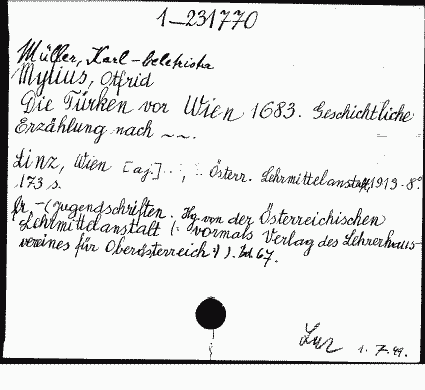 1-231770
Müller, Karl - beletrista
Mylius, Otfrid
Die Türken vor Wien 1683. Geschichtliche
Erzählung nach ~~.
Linz, Wien [a.j.] ..., Österr. Lehrmittelanstalt, 1913 - 8°
173 s.
fr. - (Jugendschriften. Hg. von der Österreichischen
Lehrmittelanstalt /: vormals Verlag des Lehrerhaus-
vereines für Oberösterreich :/ ). Bd 67.
1. 7. 49.